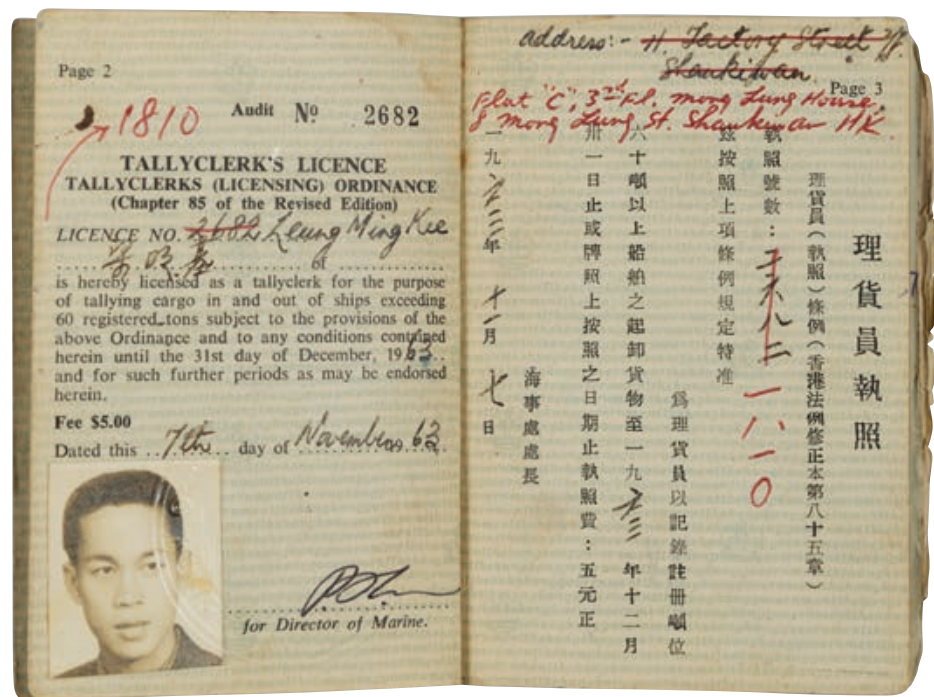 Page 2
1810
Audit No 2682
TALLYCLERK'S LICENCE
TALLYCLERKS (LICENSING) ORDINANCE
(Chapter 85 of the Revised Edition)
LICENCE NO. 2682 Leung Ming Kee
of
is hereby licensed as a tallyclerk for the purpose
of tallying cargo in and out of ships exceeding
60 registered tons subject to the provisions of the
above Ordinance and to any conditions contained
herein until the 31st day of December, 1963
and for such further periods as may be endorsed
herein.
Fee $5.00
Dated this 7th day of November 63
for Director of Marine.
address:- H. Factory Street
Shaukiwan
Page 3
Flat "C", 3rd Fl. Mong Lung House,
8 Mong Lung St. Shaukiwan HK.
理貨員執照
理貨員(執照)條例(香港法例修正本第八十五章)
執照號數:二六八二 一八一〇
茲按照上項條例規定特准
為理貨員以記錄註冊噸位
六十噸以上船舶之起卸貨物至一九六三年十二月
卅一日止或牌照上按照之日期止執照費:五元正
海事處處長
一九六三年十一月七日